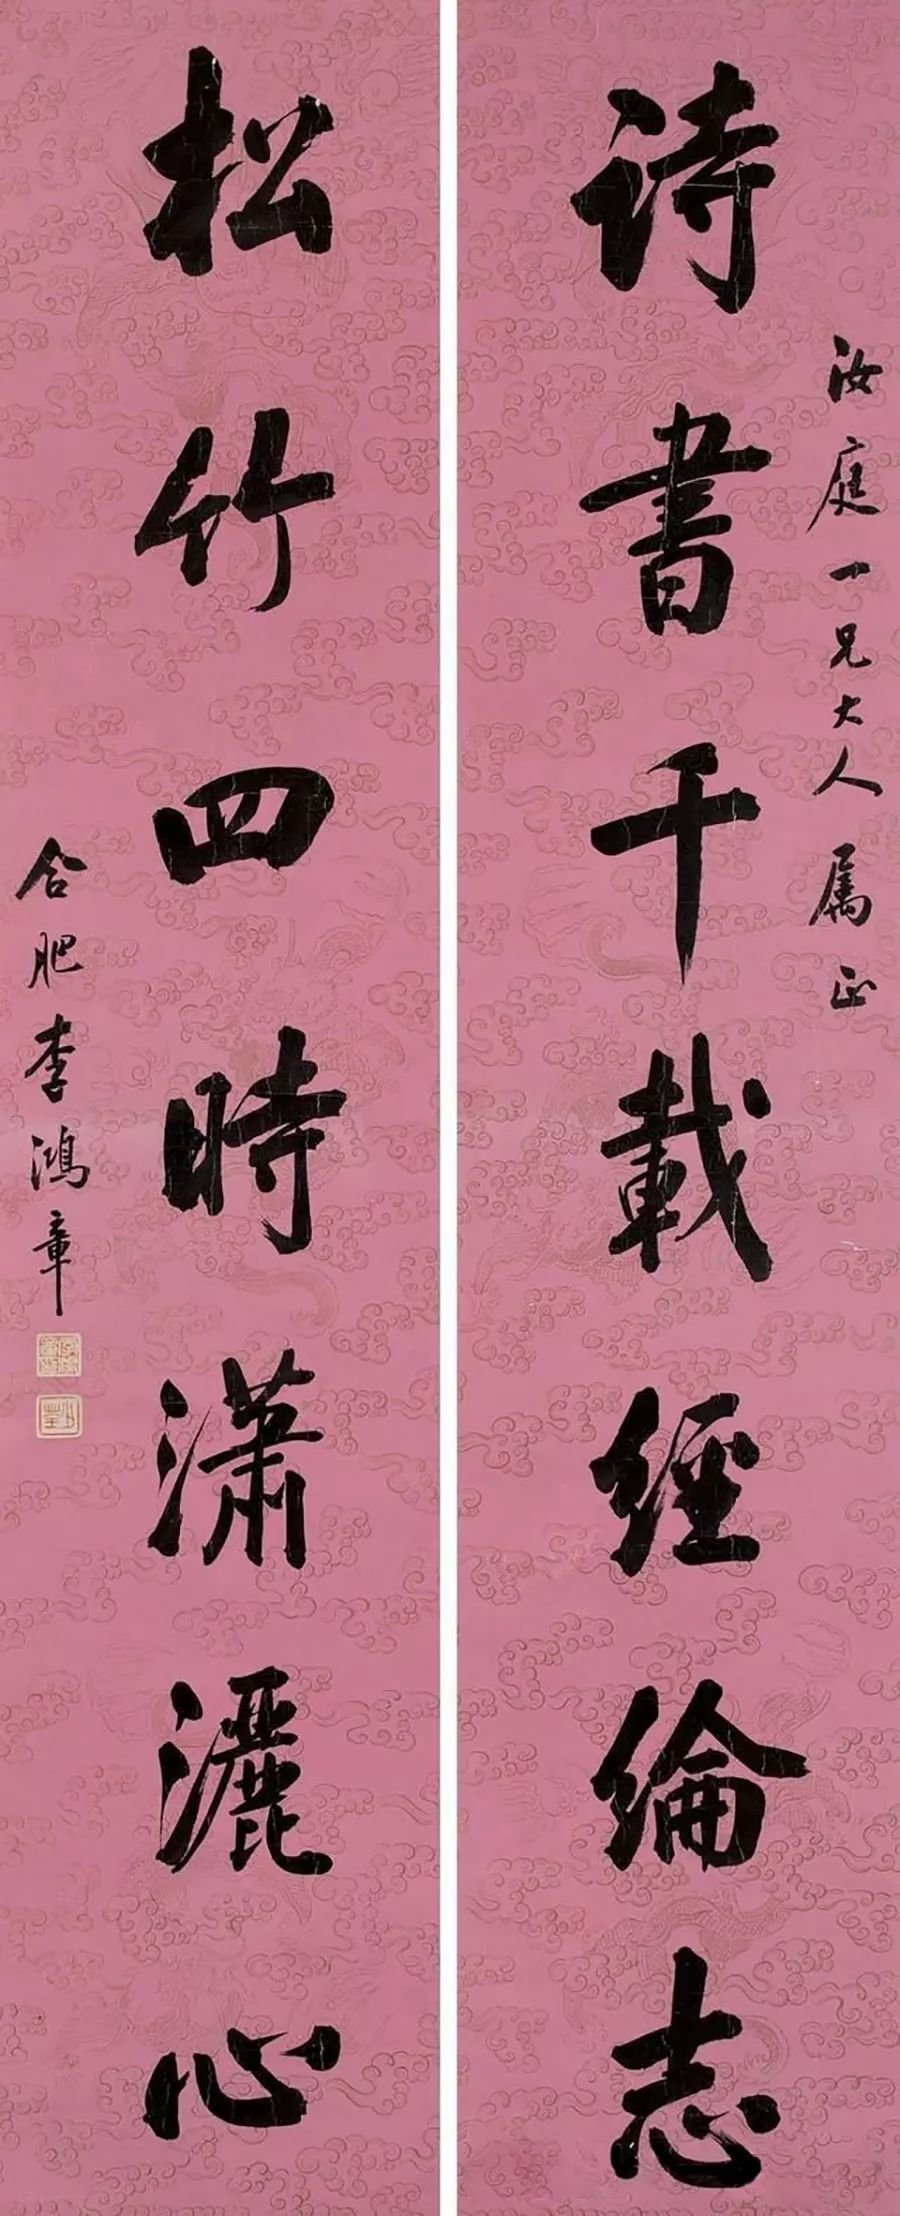 汝庭一兄大人属正
诗書千載經綸志
松竹四時潇灑心
合肥李鴻章